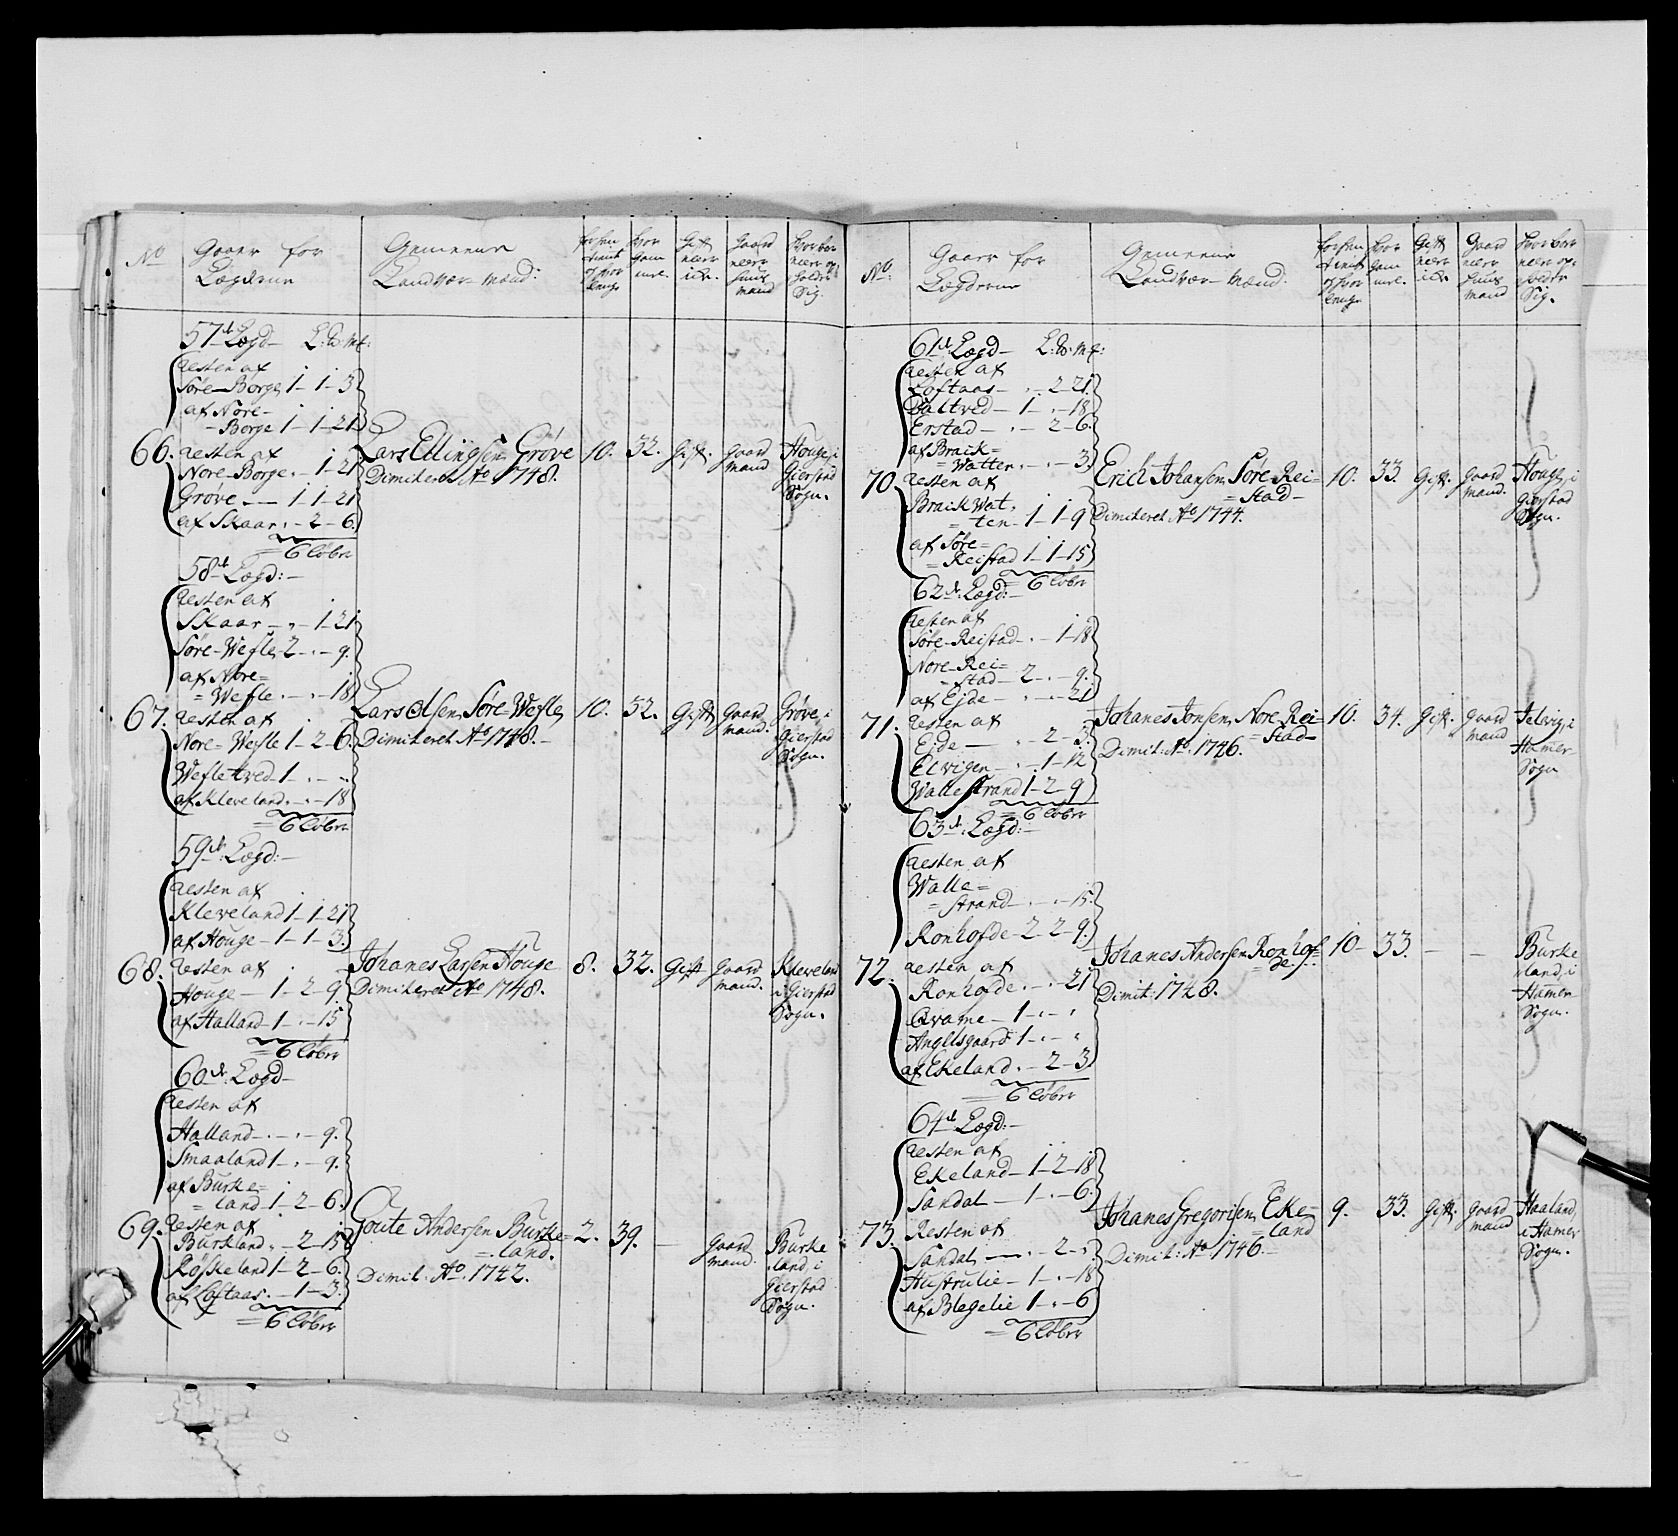 No
Gaar for
Lægderne
Gemeene
Landvær-mænd:
Gift
eller
icke.
Gaard
eller
Huus
mand
Sig.
57de Lægd- L: B: Mk:
Resten af
Søre-Borge 1-1-3
af Nore-
-Borge 1-1-21
66.
Resten af
Nore-Borge.-1-21
Grøve-- 1-1-21
af Skaar.-2-6.
=6 Løber
Lars Ellingsen Grøve
Dimiteret Ao 1748.
10. 32. Gift. Gaard
mand
Houge, i
Gierstad
Sogn.
58de Lægd:-
Resten af
Skaar-.-1-21
Søre-Wefle 2-.-9.
af Nore=
=Wefle.-.-18
67.
Resten af
Nore-Wefle 1-2-6.
Wefletved 1-.-..
af Kleveland.-.-18
=6 Løber
Lars Olsen Søre-Wefle
Dimiteret Ao 1748.-
10. 32. Gift Gaard
mand.
Grøve, i
Gierstad
Sogn.
59de Lægd:-
Resten af
Kleveland 1-1-21
af Houge-1-1-3.
68.
Resten af
Houge- 1-2-9.
af Halland-1-.-15
=6 Løber
Johanes Larsen Houge
Dimiteret Ao 1748.
8. 32. Gift Gaard
mand.
Kleveland
i Gierstad
Sogn.
60de Lægd-
Resten af
Halland-.-.-9.
Smaaland 1-.-9.
af Burke=
=land 1-2-6.
69.
Resten af
Burkland.-2-15
Røskeland 1-2-6.
af Loftaas.-1-3.
=6 Løber
Goute Andersen Burke=
=land.
Dimit. Ao. 1742.
2. 39. - Gaard
mand.
Burke
land, i
Gierstad
Sogn.
No:
Gaar for
Lægderne
Gemeene
Landvær-mænd:
Gift
eller
icke
Gaard
eller
Huus
mand
Sig.
61de Lægd- L: B: Mk:
Resten af
Loftaas-.-2-21
Daltved-1-.-18
Erstad-.-2-6.
af Braick=
=Watten.-.-3.
70.
Resten af
Braick Wat,
=ten-1-1-9
af Søre=
=Reistad 1-1-15
=6 Løber
Erich Johansen Søre-Rei=
=stad-
Dimiteret Ao 1744.
10. 33. Gift. Gaard
mand.
Houge, i
Gierstad
Sogn.
62de Lægd:-
Resten af
Søre-Reistad-.-1-18
Nore-Rei=
=stad-2-.-9.
af Eide-.-.-21
71.
Resten af
Eide-.-2-3.
Elvigen-.-1-12
Wallestrand 1-2-9
=6 Løber
Johanes Jonsen Nore Rei=
=stad-
Dimit: Ao. 1746.
10. 34. Gift. Gaard
mand
i
Hamer
Sogn
63de Lægd:-
Resten af
Walle=
=strand-.-.-15.
Ronhofde-2-2-9.
72.
Resten af
Ronhofde.-.-21
Qvame-1-.-.
Anglisgaard 1-.-.
af Ekeland.-2-3.
=6 Løber
Johanes Andersen Ronhof=
=de.
Dimit: 1748.
10- 33. - -
Burke
land, i
Hamer
Sogn.
64de Lægd:-
Resten af
Ekeland-1-2-18
Sandal-1-.-6.
73.
Resten af
Sandal-.-2-.
Hustrulie-1-.-18
af Blegelie 1-.-6
=6 Løber
Johanes Gregorisen Eke=
=land
Dimit: Ao 1746.-
9. 33. Gift. Gaard
mand
Haaland,
i Hamer
Sogn.